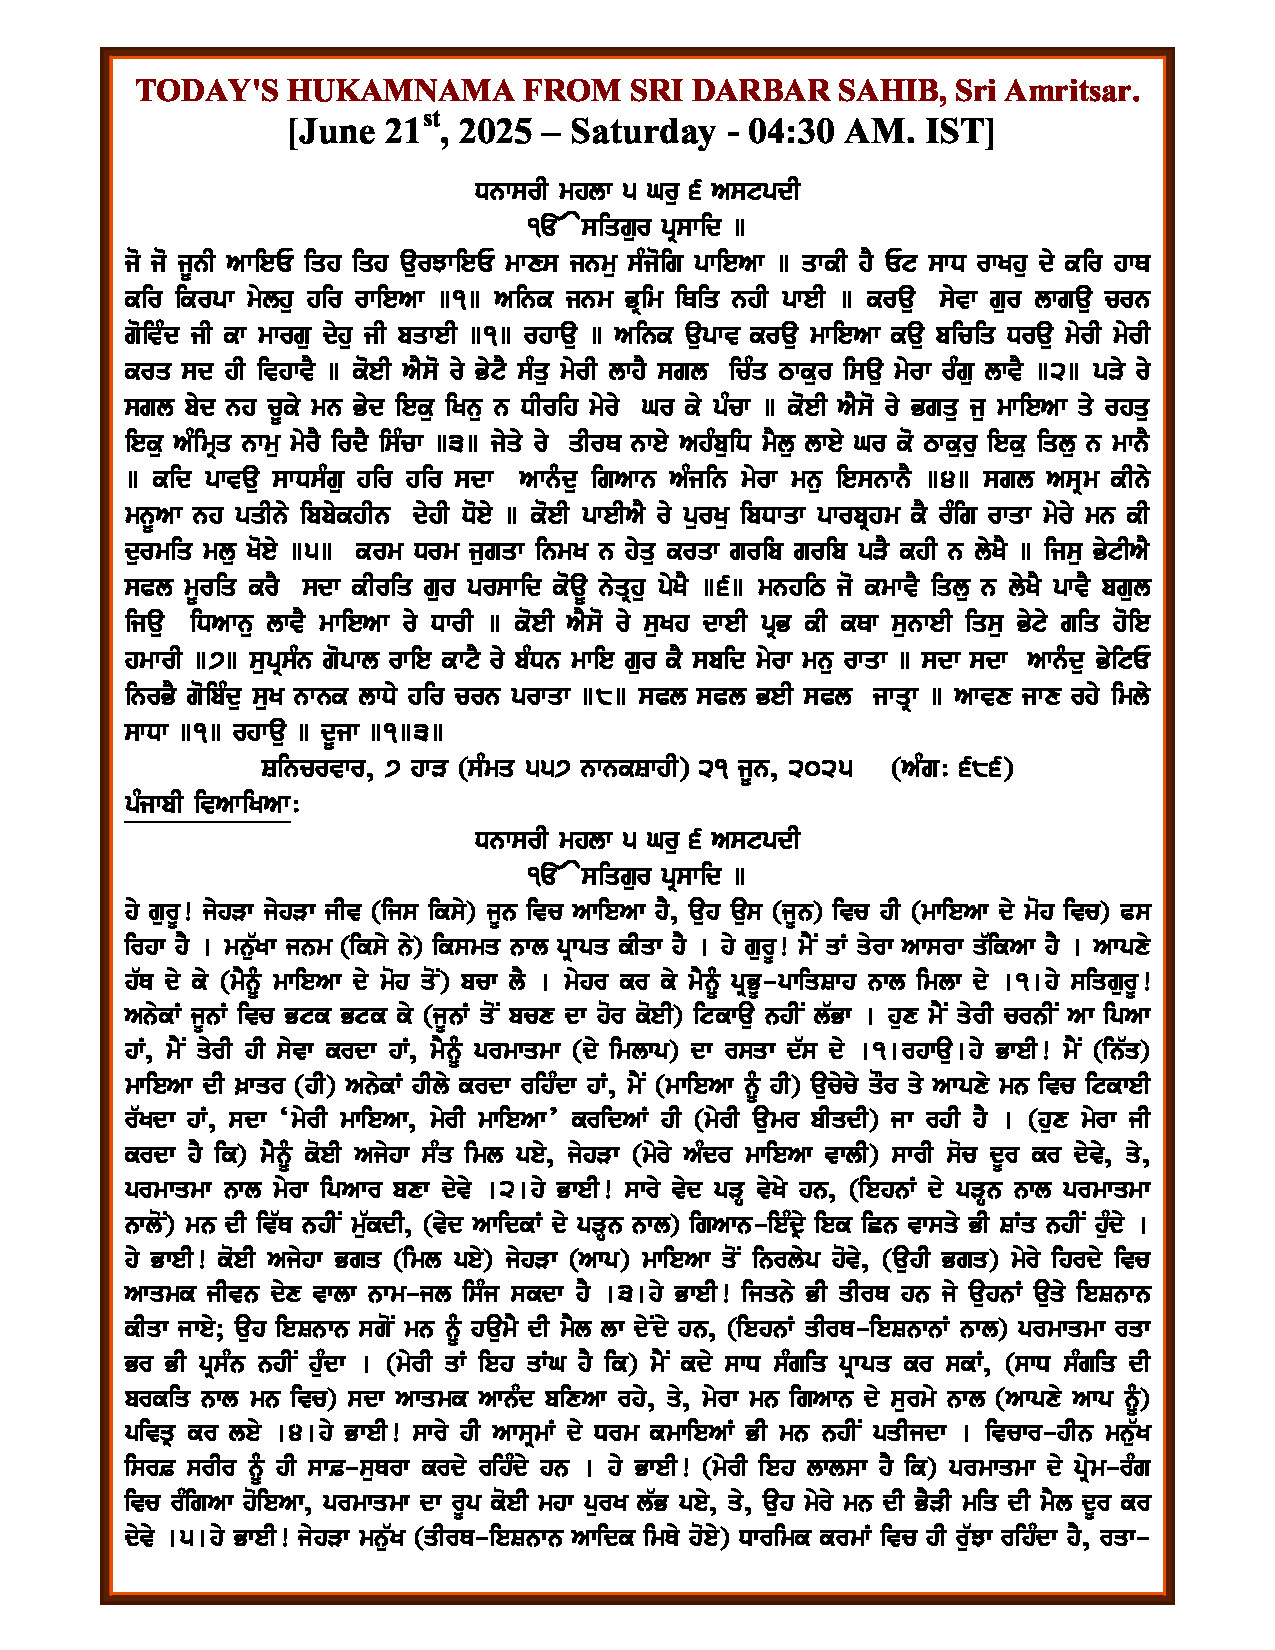 TODAY'S HUKAMNAMA FROM SRI DARBAR SAHIB, Sri Amritsar.
[June 21st, 2025 – Saturday - 04:30 AM. IST]
ਧਨਾਸਰੀ ਮਹਲਾ ੫ ਘਰੁ ੬ ਅਸਟਪਦੀ
ੴ ਸਤਿਗੁਰ ਪ੍ਰਸਾਦਿ ॥
ਜੋ ਜੋ ਜੂਨੀ ਆਇਓ ਤਿਹ ਤਿਹ ਉਰਝਾਇਓ ਮਾਣਸ ਜਨਮੁ ਸੰਜੋਗਿ ਪਾਇਆ ॥ ਤਾਕੀ ਹੈ ਓਟ ਸਾਧ ਰਾਖਹੁ ਦੇ ਕਰਿ ਹਾਥ
ਕਰਿ ਕਿਰਪਾ ਮੇਲਹੁ ਹਰਿ ਰਾਇਆ ॥੧॥ ਅਨਿਕ ਜਨਮ ਭ੍ਰਮਿ ਥਿਤਿ ਨਹੀ ਪਾਈ ॥ ਕਰਉ ਸੇਵਾ ਗੁਰ ਲਾਗਉ ਚਰਨ
ਗੋਵਿੰਦ ਜੀ ਕਾ ਮਾਰਗੁ ਦੇਹੁ ਜੀ ਬਤਾਈ ॥੧॥ ਰਹਾਉ ॥ ਅਨਿਕ ਉਪਾਵ ਕਰਉ ਮਾਇਆ ਕਉ ਬਚਿਤਿ ਧਰਉ ਮੇਰੀ ਮੇਰੀ
ਕਰਤ ਸਦ ਹੀ ਵਿਹਾਵੈ ॥ ਕੋਈ ਐਸੋ ਰੇ ਭੇਟੈ ਸੰਤੁ ਮੇਰੀ ਲਾਹੈ ਸਗਲ ਚਿੰਤ ਠਾਕੁਰ ਸਿਉ ਮੇਰਾ ਰੰਗੁ ਲਾਵੈ ॥੨॥ ਪੜੇ ਰੇ
ਸਗਲ ਬੇਦ ਨਹ ਚੂਕੇ ਮਨ ਭੇਦ ਇਕੁ ਖਿਨੁ ਨ ਧੀਰਹਿ ਮੇਰੇ ਘਰ ਕੇ ਪੰਚਾ ॥ ਕੋਈ ਐਸੋ ਰੇ ਭਗਤੁ ਜੁ ਮਾਇਆ ਤੇ ਰਹਤੁ
ਇਕੁ ਅੰਮ੍ਰਿਤ ਨਾਮੁ ਮੇਰੈ ਰਿਦੈ ਸਿੰਚਾ ॥੩॥ ਜੇਤੇ ਰੇ ਤੀਰਥ ਨਾਏ ਅਹੰਬੁਧਿ ਮੈਲੁ ਲਾਏ ਘਰ ਕੋ ਠਾਕੁਰੁ ਇਕੁ ਤਿਲੁ ਨ ਮਾਨੈ
॥ ਕਦਿ ਪਾਵਉ ਸਾਧਸੰਗੁ ਹਰਿ ਹਰਿ ਸਦਾ ਆਨੰਦੁ ਗਿਆਨ ਅੰਜਨਿ ਮੇਰਾ ਮਨੁ ਇਸਨਾਨੈ ॥੪॥ ਸਗਲ ਅਸ੍ਰਮ ਕੀਨੇ
ਮਨੂਆ ਨਹ ਪਤੀਨੇ ਬਿਬੇਕਹੀਨ ਦੇਹੀ ਧੋਏ ॥ ਕੋਈ ਪਾਈਐ ਰੇ ਪੁਰਖੁ ਬਿਧਾਤਾ ਪਾਰਬ੍ਰਹਮ ਕੈ ਰੰਗਿ ਰਾਤਾ ਮੇਰੇ ਮਨ ਕੀ
ਦੁਰਮਤਿ ਮਲੁ ਖੋਏ ॥੫॥ ਕਰਮ ਧਰਮ ਜੁਗਤਾ ਨਿਮਖ ਨ ਹੇਤੁ ਕਰਤਾ ਗਰਬਿ ਗਰਬਿ ਪੜੈ ਕਹੀ ਨ ਲੇਖੈ ॥ ਜਿਸੁ ਭੇਟੀਐ
ਸਫਲ ਮੂਰਤਿ ਕਰੈ ਸਦਾ ਕੀਰਤਿ ਗੁਰ ਪਰਸਾਦਿ ਕੋਊ ਨੇਤ੍ਰਹੁ ਪੇਖੈ ॥੬॥ ਮਨਹਠਿ ਜੋ ਕਮਾਵੈ ਤਿਲੁ ਨ ਲੇਖੈ ਪਾਵੈ ਬਗੁਲ
ਜਿਉ ਧਿਆਨੁ ਲਾਵੈ ਮਾਇਆ ਰੇ ਧਾਰੀ ॥ ਕੋਈ ਐਸੋ ਰੇ ਸੁਖਹ ਦਾਈ ਪ੍ਰਭ ਕੀ ਕਥਾ ਸੁਨਾਈ ਤਿਸੁ ਭੇਟੇ ਗਤਿ ਹੋਇ
ਹਮਾਰੀ ॥੭॥ ਸੁਪ੍ਰਸੰਨ ਗੋਪਾਲ ਰਾਇ ਕਾਟੈ ਰੇ ਬੰਧਨ ਮਾਇ ਗੁਰ ਕੈ ਸਬਦਿ ਮੇਰਾ ਮਨੁ ਰਾਤਾ ॥ ਸਦਾ ਸਦਾ ਆਨੰਦੁ ਭੇਟਿਓ
ਨਿਰਭੈ ਗੋਬਿੰਦੁ ਸੁਖ ਨਾਨਕ ਲਾਧੇ ਹਰਿ ਚਰਨ ਪਰਾਤਾ ॥੮॥ ਸਫਲ ਸਫਲ ਭਈ ਸਫਲ ਜਾਤ੍ਰਾ ॥ ਆਵਣ ਜਾਣ ਰਹੇ ਮਿਲੇ
ਸਾਧਾ ॥੧॥ ਰਹਾਉ ॥ ਦੂਜਾ ॥੧॥੩॥
ਸ਼ਨਿਚਰਵਾਰ, ੭ ਹਾੜ (ਸੰਮਤ ੫੫੭ ਨਾਨਕਸ਼ਾਹੀ) ੨੧ ਜੂਨ, ੨੦੨੫ (ਅੰਗ: ੬੮੬)
ਪੰਜਾਬੀ ਵਿਆਖਿਆ:
ਧਨਾਸਰੀ ਮਹਲਾ ੫ ਘਰੁ ੬ ਅਸਟਪਦੀ
ੴ ਸਤਿਗੁਰ ਪ੍ਰਸਾਦਿ ॥
ਹੇ ਗੁਰੂ! ਜੇਹੜਾ ਜੇਹੜਾ ਜੀਵ (ਜਿਸ ਕਿਸੇ) ਜੂਨ ਵਿਚ ਆਇਆ ਹੈ, ਉਹ ਉਸ (ਜੂਨ) ਵਿਚ ਹੀ (ਮਾਇਆ ਦੇ ਮੋਹ ਵਿਚ) ਫਸ
ਰਿਹਾ ਹੈ । ਮਨੁੱਖਾ ਜਨਮ (ਕਿਸੇ ਨੇ) ਕਿਸਮਤ ਨਾਲ ਪ੍ਰਾਪਤ ਕੀਤਾ ਹੈ । ਹੇ ਗੁਰੂ! ਮੈਂ ਤਾਂ ਤੇਰਾ ਆਸਰਾ ਤੱਕਿਆ ਹੈ । ਆਪਣੇ
ਹੱਥ ਦੇ ਕੇ (ਮੈਨੂੰ ਮਾਇਆ ਦੇ ਮੋਹ ਤੋਂ) ਬਚਾ ਲੈ । ਮੇਹਰ ਕਰ ਕੇ ਮੈਨੂੰ ਪ੍ਰਭੂ-ਪਾਤਿਸ਼ਾਹ ਨਾਲ ਮਿਲਾ ਦੇ ।੧।ਹੇ ਸਤਿਗੁਰੂ!
ਅਨੇਕਾਂ ਜੂਨਾਂ ਵਿਚ ਭਟਕ ਭਟਕ ਕੇ (ਜੂਨਾਂ ਤੋਂ ਬਚਣ ਦਾ ਹੋਰ ਕੋਈ) ਟਿਕਾਉ ਨਹੀਂ ਲੱਭਾ । ਹੁਣ ਮੈਂ ਤੇਰੀ ਚਰਨੀਂ ਆ ਪਿਆ
ਹਾਂ, ਮੈਂ ਤੇਰੀ ਹੀ ਸੇਵਾ ਕਰਦਾ ਹਾਂ, ਮੈਨੂੰ ਪਰਮਾਤਮਾ (ਦੇ ਮਿਲਾਪ) ਦਾ ਰਸਤਾ ਦੱਸ ਦੇ ।੧।ਰਹਾਉ।ਹੇ ਭਾਈ! ਮੈਂ (ਨਿੱਤ)
ਮਾਇਆ ਦੀ ਖ਼ਾਤਰ (ਹੀ) ਅਨੇਕਾਂ ਹੀਲੇ ਕਰਦਾ ਰਹਿੰਦਾ ਹਾਂ, ਮੈਂ (ਮਾਇਆ ਨੂੰ ਹੀ) ਉਚੇਚੇ ਤੌਰ ਤੇ ਆਪਣੇ ਮਨ ਵਿਚ ਟਿਕਾਈ
ਰੱਖਦਾ ਹਾਂ, ਸਦਾ ‘ਮੇਰੀ ਮਾਇਆ, ਮੇਰੀ ਮਾਇਆ’ ਕਰਦਿਆਂ ਹੀ (ਮੇਰੀ ਉਮਰ ਬੀਤਦੀ) ਜਾ ਰਹੀ ਹੈ । (ਹੁਣ ਮੇਰਾ ਜੀ
ਕਰਦਾ ਹੈ ਕਿ) ਮੈਨੂੰ ਕੋਈ ਅਜੇਹਾ ਸੰਤ ਮਿਲ ਪਏ, ਜੇਹੜਾ (ਮੇਰੇ ਅੰਦਰ ਮਾਇਆ ਵਾਲੀ) ਸਾਰੀ ਸੋਚ ਦੂਰ ਕਰ ਦੇਵੇ, ਤੇ,
ਪਰਮਾਤਮਾ ਨਾਲ ਮੇਰਾ ਪਿਆਰ ਬਣਾ ਦੇਵੇ ।੨।ਹੇ ਭਾਈ! ਸਾਰੇ ਵੇਦ ਪੜ੍ਹ ਵੇਖੇ ਹਨ, (ਇਹਨਾਂ ਦੇ ਪੜ੍ਹਨ ਨਾਲ ਪਰਮਾਤਮਾ
ਨਾਲੋਂ) ਮਨ ਦੀ ਵਿੱਥ ਨਹੀਂ ਮੁੱਕਦੀ, (ਵੇਦ ਆਦਿਕਾਂ ਦੇ ਪੜ੍ਹਨ ਨਾਲ) ਗਿਆਨ-ਇੰਦ੍ਰੇ ਇਕ ਛਿਨ ਵਾਸਤੇ ਭੀ ਸ਼ਾਂਤ ਨਹੀਂ ਹੁੰਦੇ ।
ਹੇ ਭਾਈ! ਕੋਈ ਅਜੇਹਾ ਭਗਤ (ਮਿਲ ਪਏ) ਜੇਹੜਾ (ਆਪ) ਮਾਇਆ ਤੋਂ ਨਿਰਲੇਪ ਹੋਵੇ, (ਉਹੀ ਭਗਤ) ਮੇਰੇ ਹਿਰਦੇ ਵਿਚ
ਆਤਮਕ ਜੀਵਨ ਦੇਣ ਵਾਲਾ ਨਾਮ-ਜਲ ਸਿੰਜ ਸਕਦਾ ਹੈ ।੩।ਹੇ ਭਾਈ! ਜਿਤਨੇ ਭੀ ਤੀਰਥ ਹਨ ਜੇ ਉਹਨਾਂ ਉਤੇ ਇਸ਼ਨਾਨ
ਕੀਤਾ ਜਾਏ; ਉਹ ਇਸ਼ਨਾਨ ਸਗੋਂ ਮਨ ਨੂੰ ਹਉਮੈ ਦੀ ਮੈਲ ਲਾ ਦੇਂਦੇ ਹਨ, (ਇਹਨਾਂ ਤੀਰਥ-ਇਸ਼ਨਾਨਾਂ ਨਾਲ) ਪਰਮਾਤਮਾ ਰਤਾ
ਭਰ ਭੀ ਪ੍ਰਸੰਨ ਨਹੀਂ ਹੁੰਦਾ । (ਮੇਰੀ ਤਾਂ ਇਹ ਤਾਂਘ ਹੈ ਕਿ) ਮੈਂ ਕਦੇ ਸਾਧ ਸੰਗਤਿ ਪ੍ਰਾਪਤ ਕਰ ਸਕਾਂ, (ਸਾਧ ਸੰਗਤਿ ਦੀ
ਬਰਕਤਿ ਨਾਲ ਮਨ ਵਿਚ) ਸਦਾ ਆਤਮਕ ਆਨੰਦ ਬਣਿਆ ਰਹੇ, ਤੇ, ਮੇਰਾ ਮਨ ਗਿਆਨ ਦੇ ਸੁਰਮੇ ਨਾਲ (ਆਪਣੇ ਆਪ ਨੂੰ)
ਪਵਿਤ੍ਰ ਕਰ ਲਏ ।੪।ਹੇ ਭਾਈ! ਸਾਰੇ ਹੀ ਆਸ੍ਰਮਾਂ ਦੇ ਧਰਮ ਕਮਾਇਆਂ ਭੀ ਮਨ ਨਹੀਂ ਪਤੀਜਦਾ । ਵਿਚਾਰ-ਹੀਨ ਮਨੁੱਖ
ਸਿਰਫ਼ ਸਰੀਰ ਨੂੰ ਹੀ ਸਾਫ਼-ਸੁਥਰਾ ਕਰਦੇ ਰਹਿੰਦੇ ਹਨ । ਹੇ ਭਾਈ! (ਮੇਰੀ ਇਹ ਲਾਲਸਾ ਹੈ ਕਿ) ਪਰਮਾਤਮਾ ਦੇ ਪ੍ਰੇਮ-ਰੰਗ
ਵਿਚ ਰੰਗਿਆ ਹੋਇਆ, ਪਰਮਾਤਮਾ ਦਾ ਰੂਪ ਕੋਈ ਮਹਾ ਪੁਰਖ ਲੱਭ ਪਏ, ਤੇ, ਉਹ ਮੇਰੇ ਮਨ ਦੀ ਭੈੜੀ ਮਤਿ ਦੀ ਮੈਲ ਦੂਰ ਕਰ
ਦੇਵੇ ।੫।ਹੇ ਭਾਈ! ਜੇਹੜਾ ਮਨੁੱਖ (ਤੀਰਥ-ਇਸ਼ਨਾਨ ਆਦਿਕ ਮਿਥੇ ਹੋਏ) ਧਾਰਮਿਕ ਕਰਮਾਂ ਵਿਚ ਹੀ ਰੁੱਝਾ ਰਹਿੰਦਾ ਹੈ, ਰਤਾ-